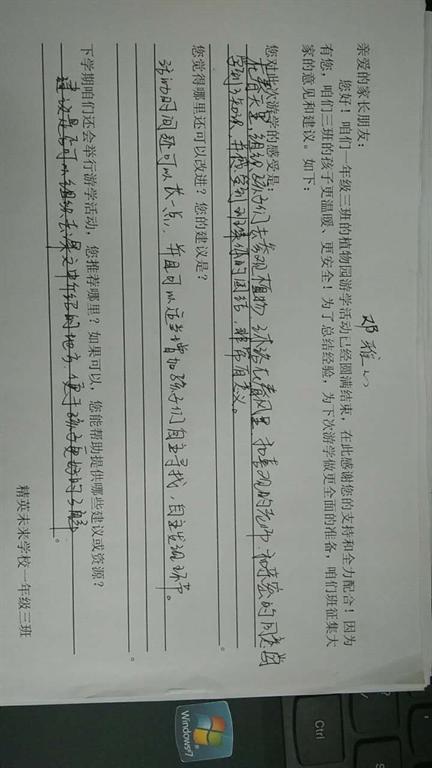 邓雅心
亲爱的家长朋友：
您好！咱们一年级三班的植物园游学活动已经圆满结束，在此感谢您的支持和全力配合！因为
有您，咱们三班的孩子更温暖、更安全！为了总结经验，为下次游学做更全面的准备，咱们班征集大
家的意见和建议。如下：
您对此次游学的感受是：
在春天里，组织孩子们去参观植物，沐浴在春风里，和喜欢的老师、和亲密的同学
学到了知识，并感受到班集体的团结，非常有意义。
您觉得哪里还可以改进？您的建议是？
活动时间还可以长一点，并且可以适当增加孩子们自主寻找，自主发现环节。
下学期咱们还会举行游学活动，您推荐哪里？如果可以，您能帮助提供哪些建议或资源？
建议是否可以组织去课文中介绍的地方，便于孩子更好的了解。
精英未来学校一年级三班
Windows7
Ctrl
Alt